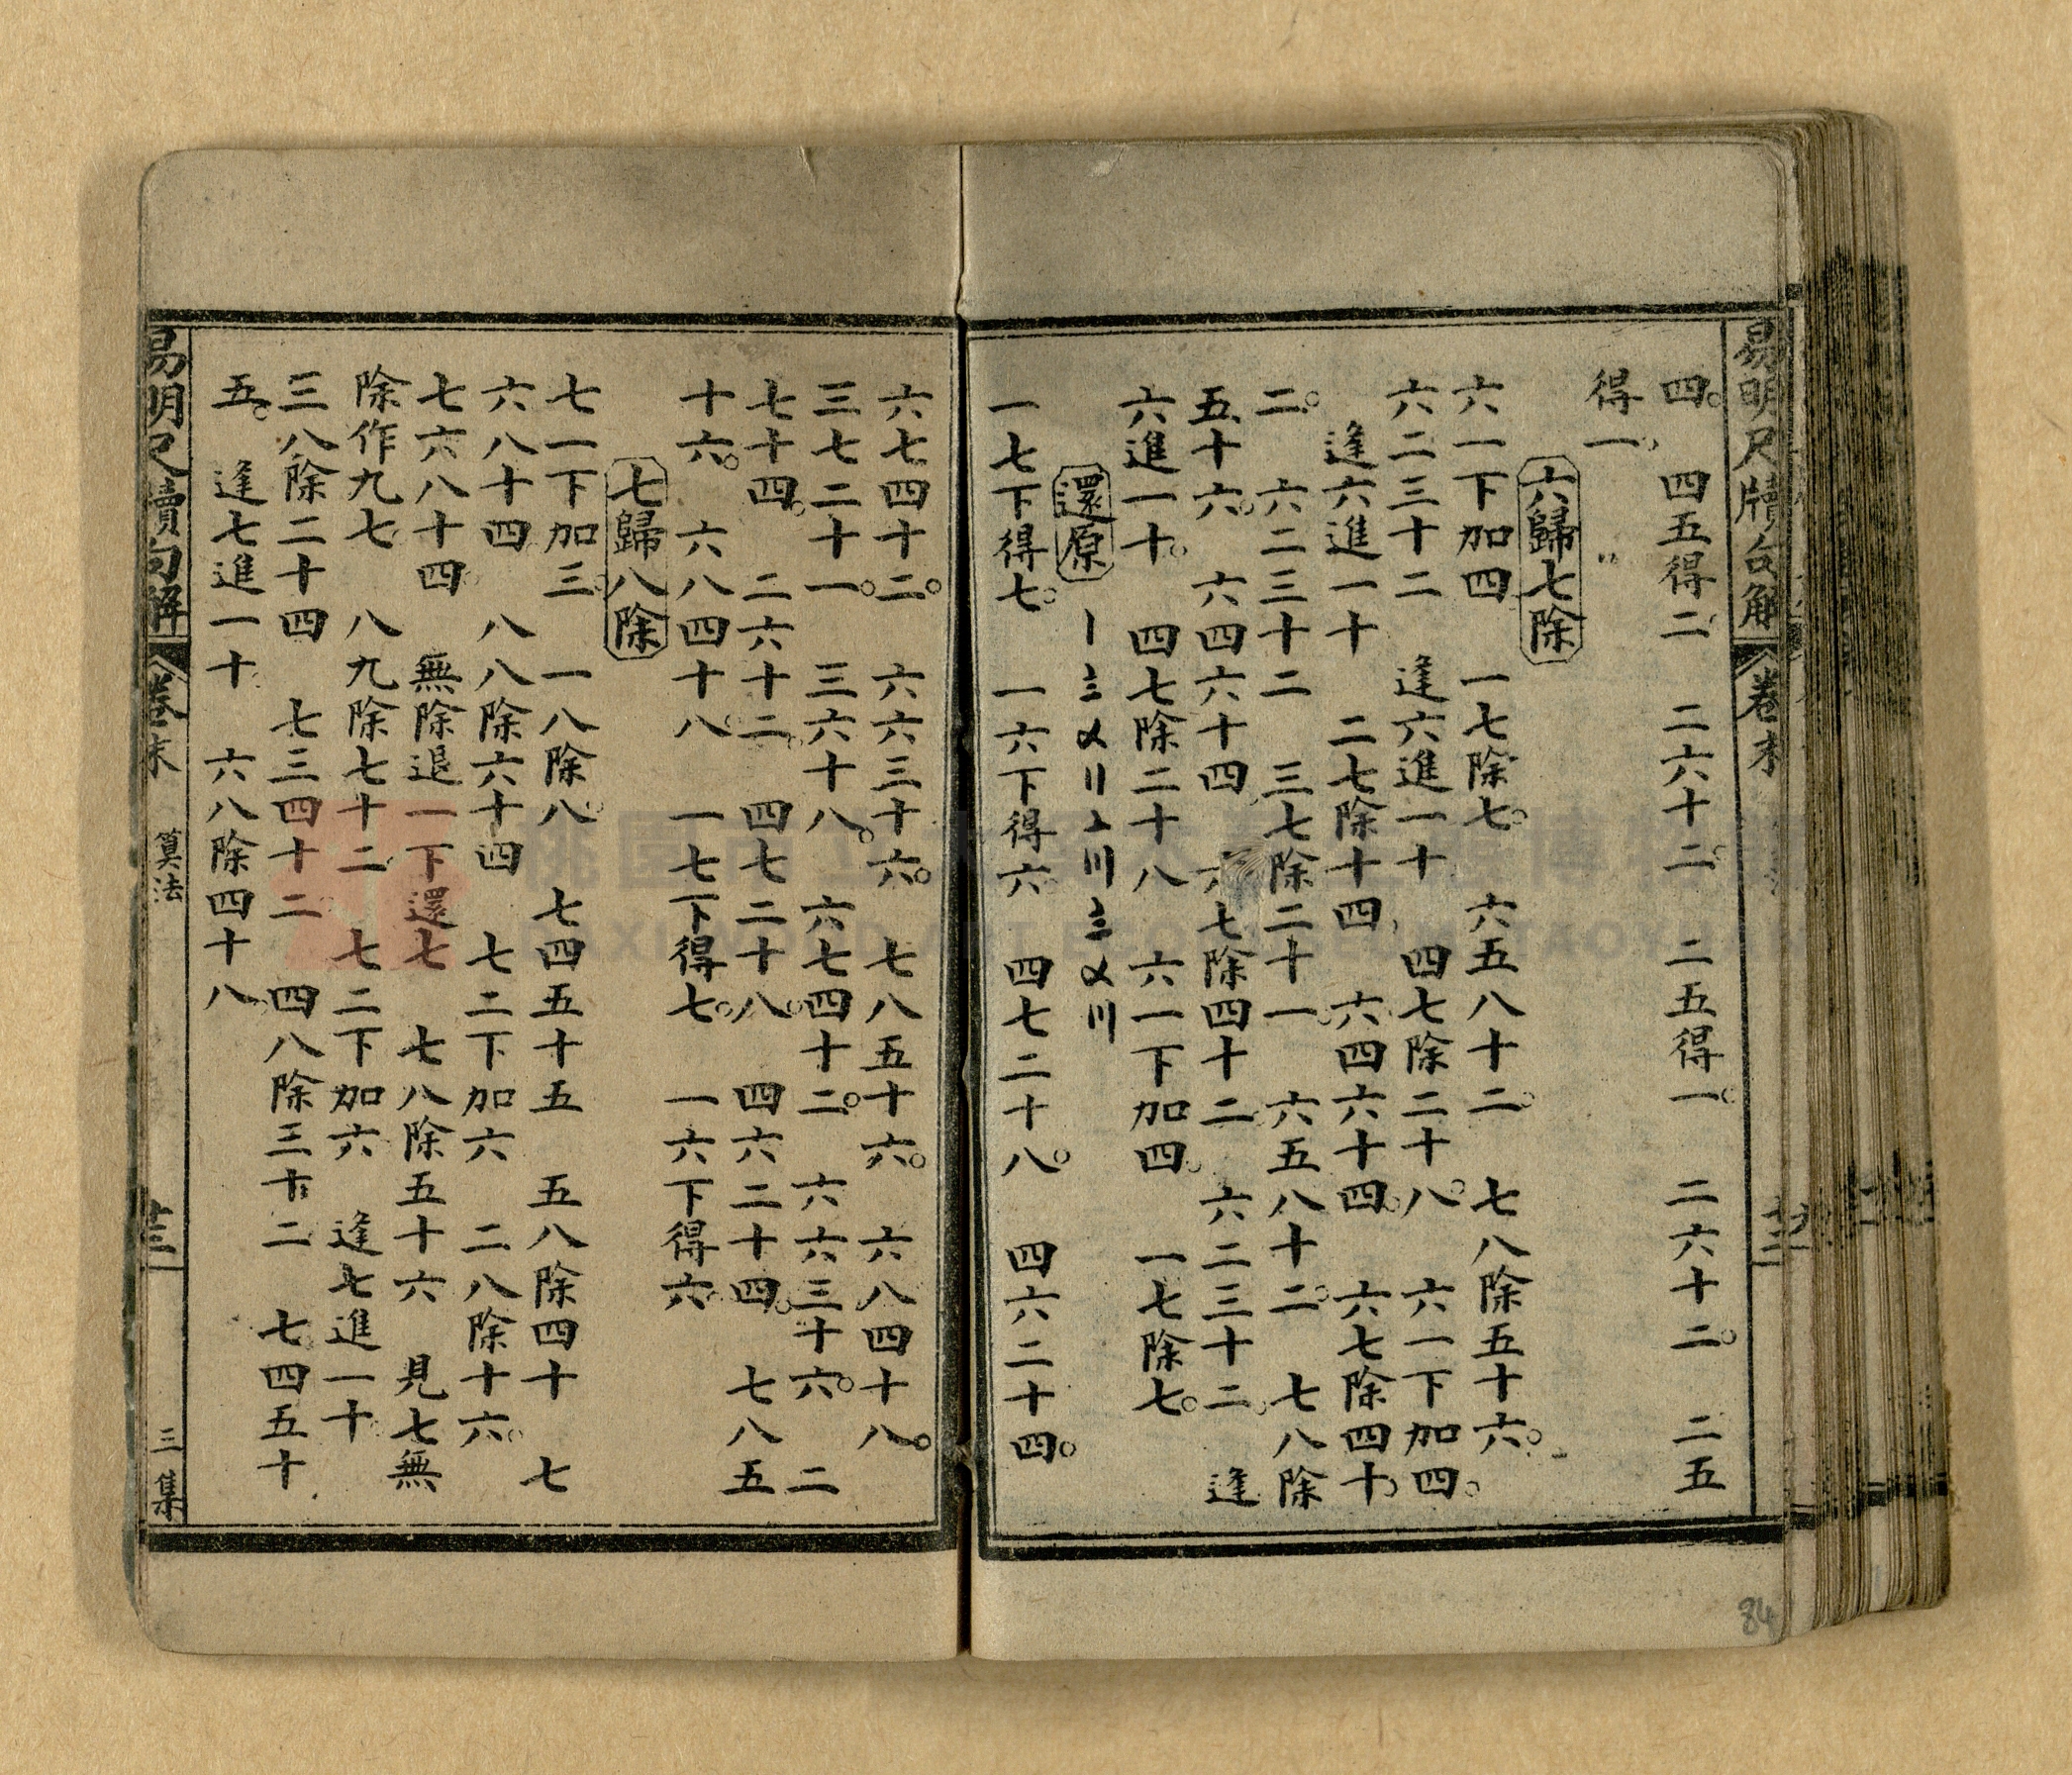 易明尺牘句解 卷末
四。 四五得二 二六十二。 二五得一。 二六十二。 二五
得一。
六歸七除
六一下加四 一七除七。 六五八十二。 七八除五十六。
六二三十二 逢六進一十 四七除二十八。 六一下加四。
逢六進一十 二七除十四 六四六十四。 六七除四十
二。 六二三十二 三七除二十一。 六五八十二。 七八除
五十六。 六四六十四 六七除四十二 六二三十二 逢
六進一十。 四七除二十八 六一下加四。 一七除七。
還原 〡〨〤〢〦〣〨〤〣
一七下得七。 一六下得六 四七二十八。 四六二十四。
六七四十二。 六六三十六。 七八五十六。 六八四十八。
三七二十一。 三六十八。 六七四十二。 六六三十六。 二
七十四。 二六十二。 四七二十八。 四六二十四。 七八五
十六。 六八四十八。 一七下得七。 一六下得六。
七歸八除
七一下加三。 一八除八。 七四五十五 五八除四十 七
六八十四 八八除六十四 七二下加六 二八除十六。
七六八十四 無除退一下還七 七八除五十六 見七無
除作九七 八九除七十二 七二下加六 逢七進一十。
三八除二十四 七三四十二 四八除三十二 七四五十
五。 逢七進一十 六八除四十八。
易明尺牘句解 卷末 算法 廿三 三集
84